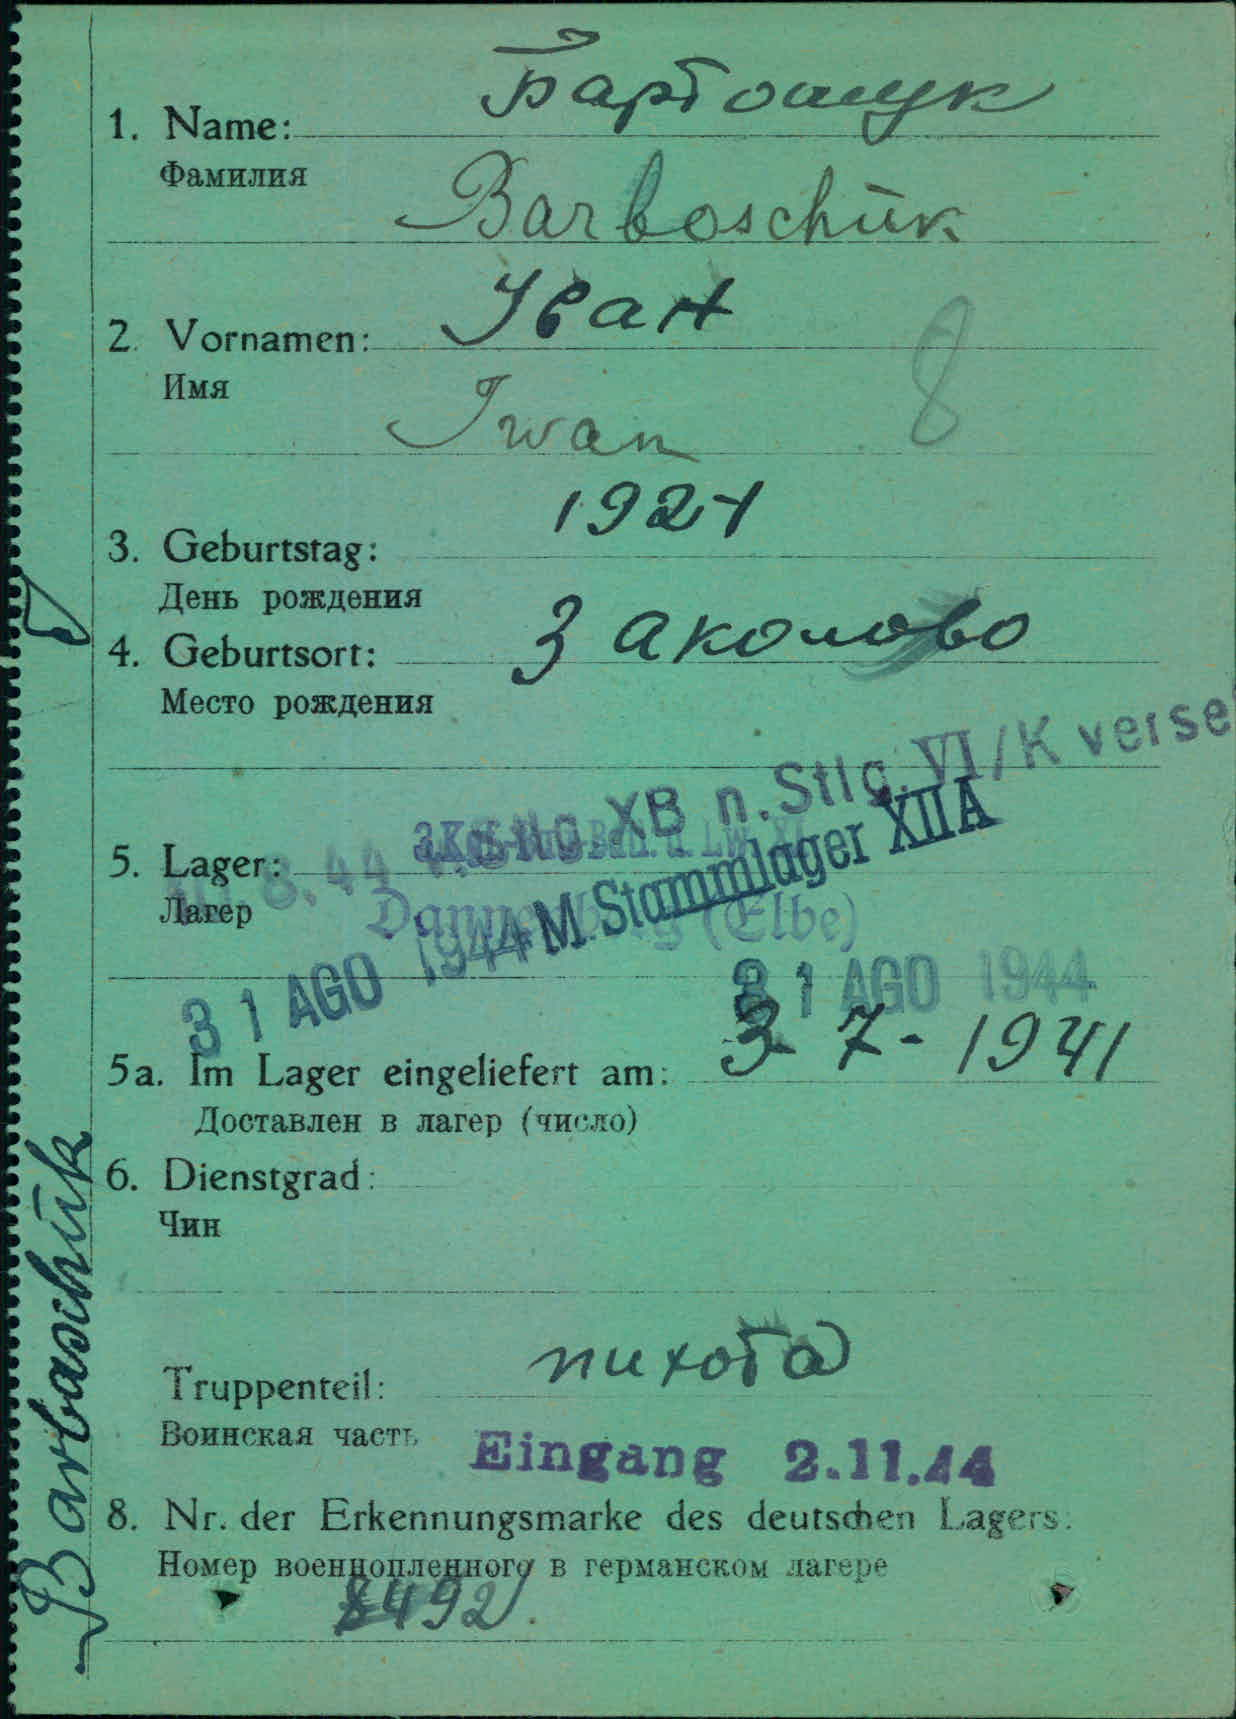 Бартошук
1. Name:
Фамилия
Barboschuk
Иван
2. Vornamen:
8
Имя
Iwan
1921
3. Geburtstag:
День рождения
Заколово
4. Geburtsort:
Место рождения
XB n. Stlg. VI/K verse
5. Lager:
8.44
Лагер
(Elbe)
31 AGO 1944 M. Stammlager XIIA
31 AGO 1944
3 7 - 1941
5a. Im Lager eingeliefert am:
Доставлен в лагер (число)
6. Dienstgrad:
Чин
пихота
Truppenteil:
Воинская часть
Eingang 2.11.44
8. Nr. der Erkennungsmarke des deutschen Lagers:
Номер военнопленного в германском лагере
8492
Barbaschuk